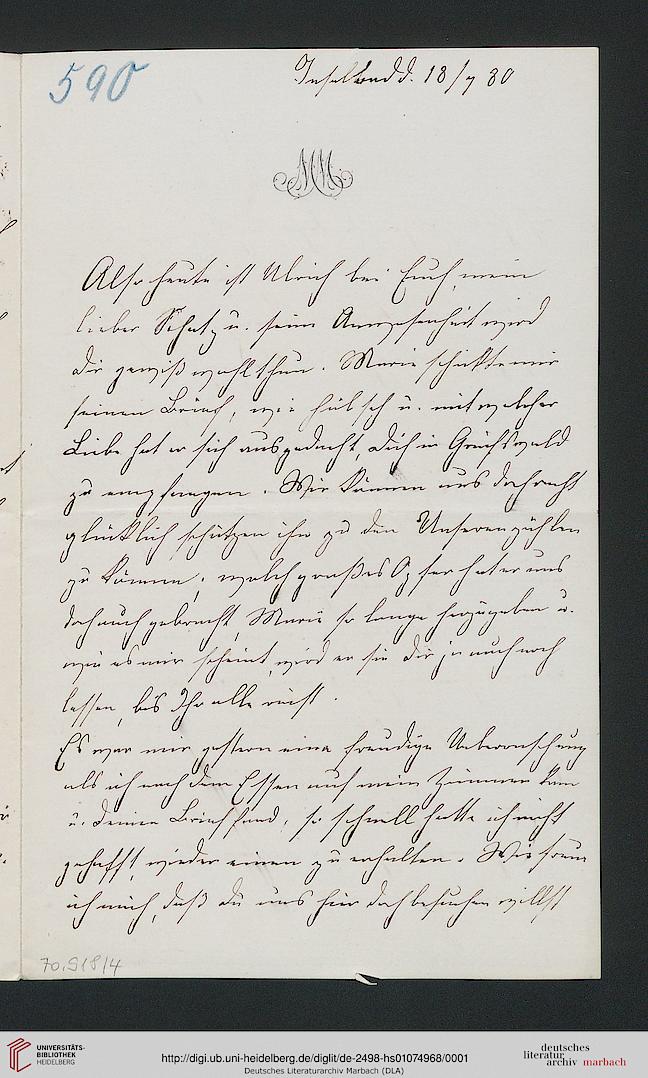 590
Inselbad d. 18/7 80
MM
Also heute ist Ulrich bei Euch, mein
lieber Schatz u. seine Anwesenheit wird
dir gewiß wohl thun. Marie schickte mir
seinen Brief, wie hübsch u. mit welcher
Liebe hat er sich ausgedacht, dich in Greifswald
zu empfangen. Wir können uns doch recht
glücklich schätzen ihn zu den Unseren zählen
zu können; welch großes Opfer hat er uns
doch auch gebracht, Marie so lange herzugeben u.
wie es mir scheint, wird er sie dir ja auch noch
lassen, bis Ihr alle reist.
Es war mir gestern eine freudige Ueberraschung
als ich nach dem Essen auf mein Zimmer kam
u. deinen Brief fand, so schnell hatte ich nicht
gehofft, wieder einen zu erhalten. Wie freue
ich mich, daß du uns hier doch besuchen willst
70.918/4
UNIVERSITÄTS-
BIBLIOTHEK
HEIDELBERG
http://digi.ub.uni-heidelberg.de/diglit/de-2498-hs01074968/0001
Deutsches Literaturarchiv Marbach (DLA)
deutsches
literatur
archiv marbach